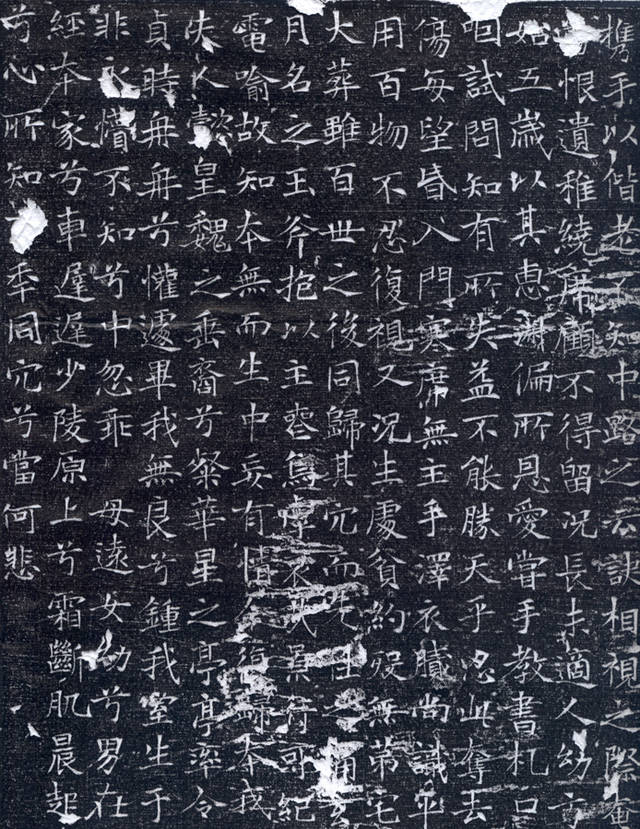 携手以偕老不知中路之云訣相視之際奄
恨遺稚繞席顧不得留況長未適人幼方
始五歲以其惠淑偏所恩愛嘗手教書札口
咽試問知有所失益不能勝天乎忍此奪去
傷每望昏入門寒席無主手澤衣膩尚識平
用百物不忍復視又況生處貧約歿無第宅
大葬雖百世之後同歸其穴而先往之痛玄
月名之玉斧抱以主喪烏虖哀哉景行可紀
電喻故知本無而生中妄有情今復歸本我
夫人懿皇魏之垂裔兮粲華星之亭亭率令
貞時冉冉兮懽遽畢我無良兮鍾我室生于
非永惜不知兮中忽乖母遠女幼兮男在
經本家兮車遲遲少陵原上兮霜斷肌晨起
兮心所知 同穴兮當何悲